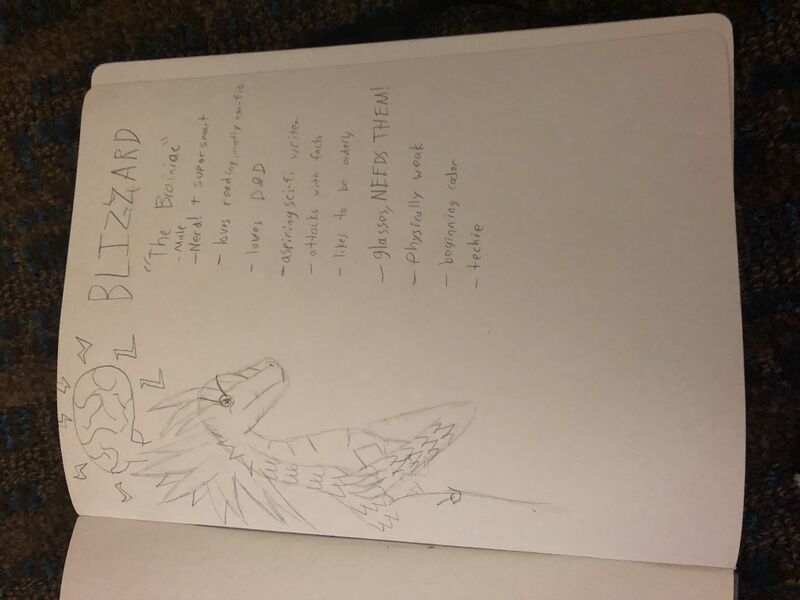 BLIZZARD
"The Brainiac"
- Male
- Nerd! + super smart
- loves reading, mostly non-fic
- loves D&D
- aspiring sci-fi writer
- attacks with facts
- likes to be orderly
- glasses, NEEDS THEM!
- Physically weak
- beginning coder
- techie